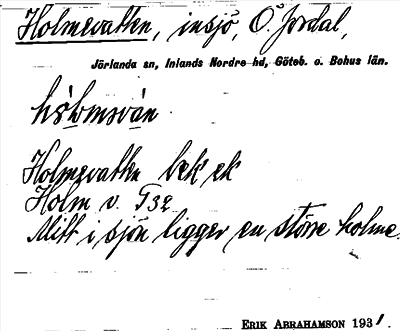 Holmevatten, insjö, Ö. Jordal,
Jörlanda sn, Inlands Nordre hd, Göteb. o. Bohus län.
Holmevatten bek ek
Holm v. T32
Mitt i sjön ligger en större holme.
ERIK ABRAHAMSON 1931.